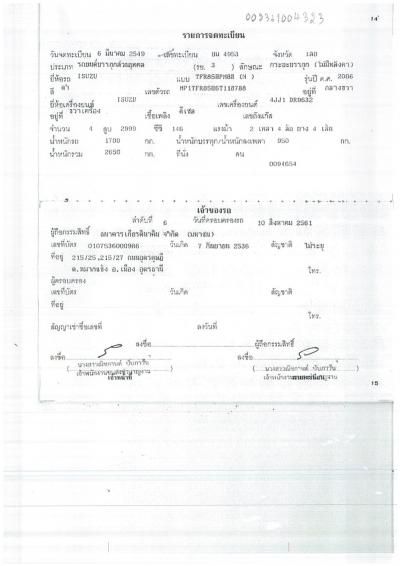 009341004323
14
รายการจดทะเบียน
วันจดทะเบียน 6 มีนาคม 2549 เลขทะเบียน บน 4953 จังหวัด เลย
ประเภท รถยนต์บรรทุกส่วนบุคคล (รย. 3 ) ลักษณะ กระบะบรรทุก (ไม่มีหลังคา)
ยี่ห้อรถ ISUZU แบบ รุ่นปี ค.ศ. 2006
สี ดำ เลขตัวรถ อยู่ที่ กลางขวา
ยี่ห้อเครื่องยนต์ ISUZU เลขเครื่องยนต์ 4JJ1 DR0632
อยู่ที่ ขวาเครื่อง เชื้อเพลิง ดีเซล เลขถังแก๊ส
จำนวน 4 สูบ 2999 ซีซี 146 แรงม้า 2 เพลา 4 ล้อ ยาง 4 เส้น
น้ำหนักรถ 1700 กก. น้ำหนักบรรทุก/น้ำหนักลงเพลา 950 กก.
น้ำหนักรวม 2650 กก. ที่นั่ง คน
0094654
เจ้าของรถ
ลำดับที่ 6 วันที่ครอบครองรถ 10 สิงหาคม 2561
ผู้ถือกรรมสิทธิ์ ธนาคารเกียรตินาคิน จำกัด (มหาชน)
เลขที่บัตร 0107536000986 วันเกิด 7 กันยายน 2536 สัญชาติ ไม่ระบุ
ที่อยู่ 215/25,215/27 ถนนอุดรดุษฎี
ต.หมากแข้ง อ.เมือง อุดรธานี โทร.
ผู้ครอบครอง
เลขที่บัตร วันเกิด สัญชาติ
ที่อยู่
โทร.
สัญญาเช่าซื้อเลขที่ ลงวันที่
ลงชื่อ ผู้ถือกรรมสิทธิ์
ลงชื่อ ลงชื่อ
เจ้าหน้าที่ นายทะเบียน
15